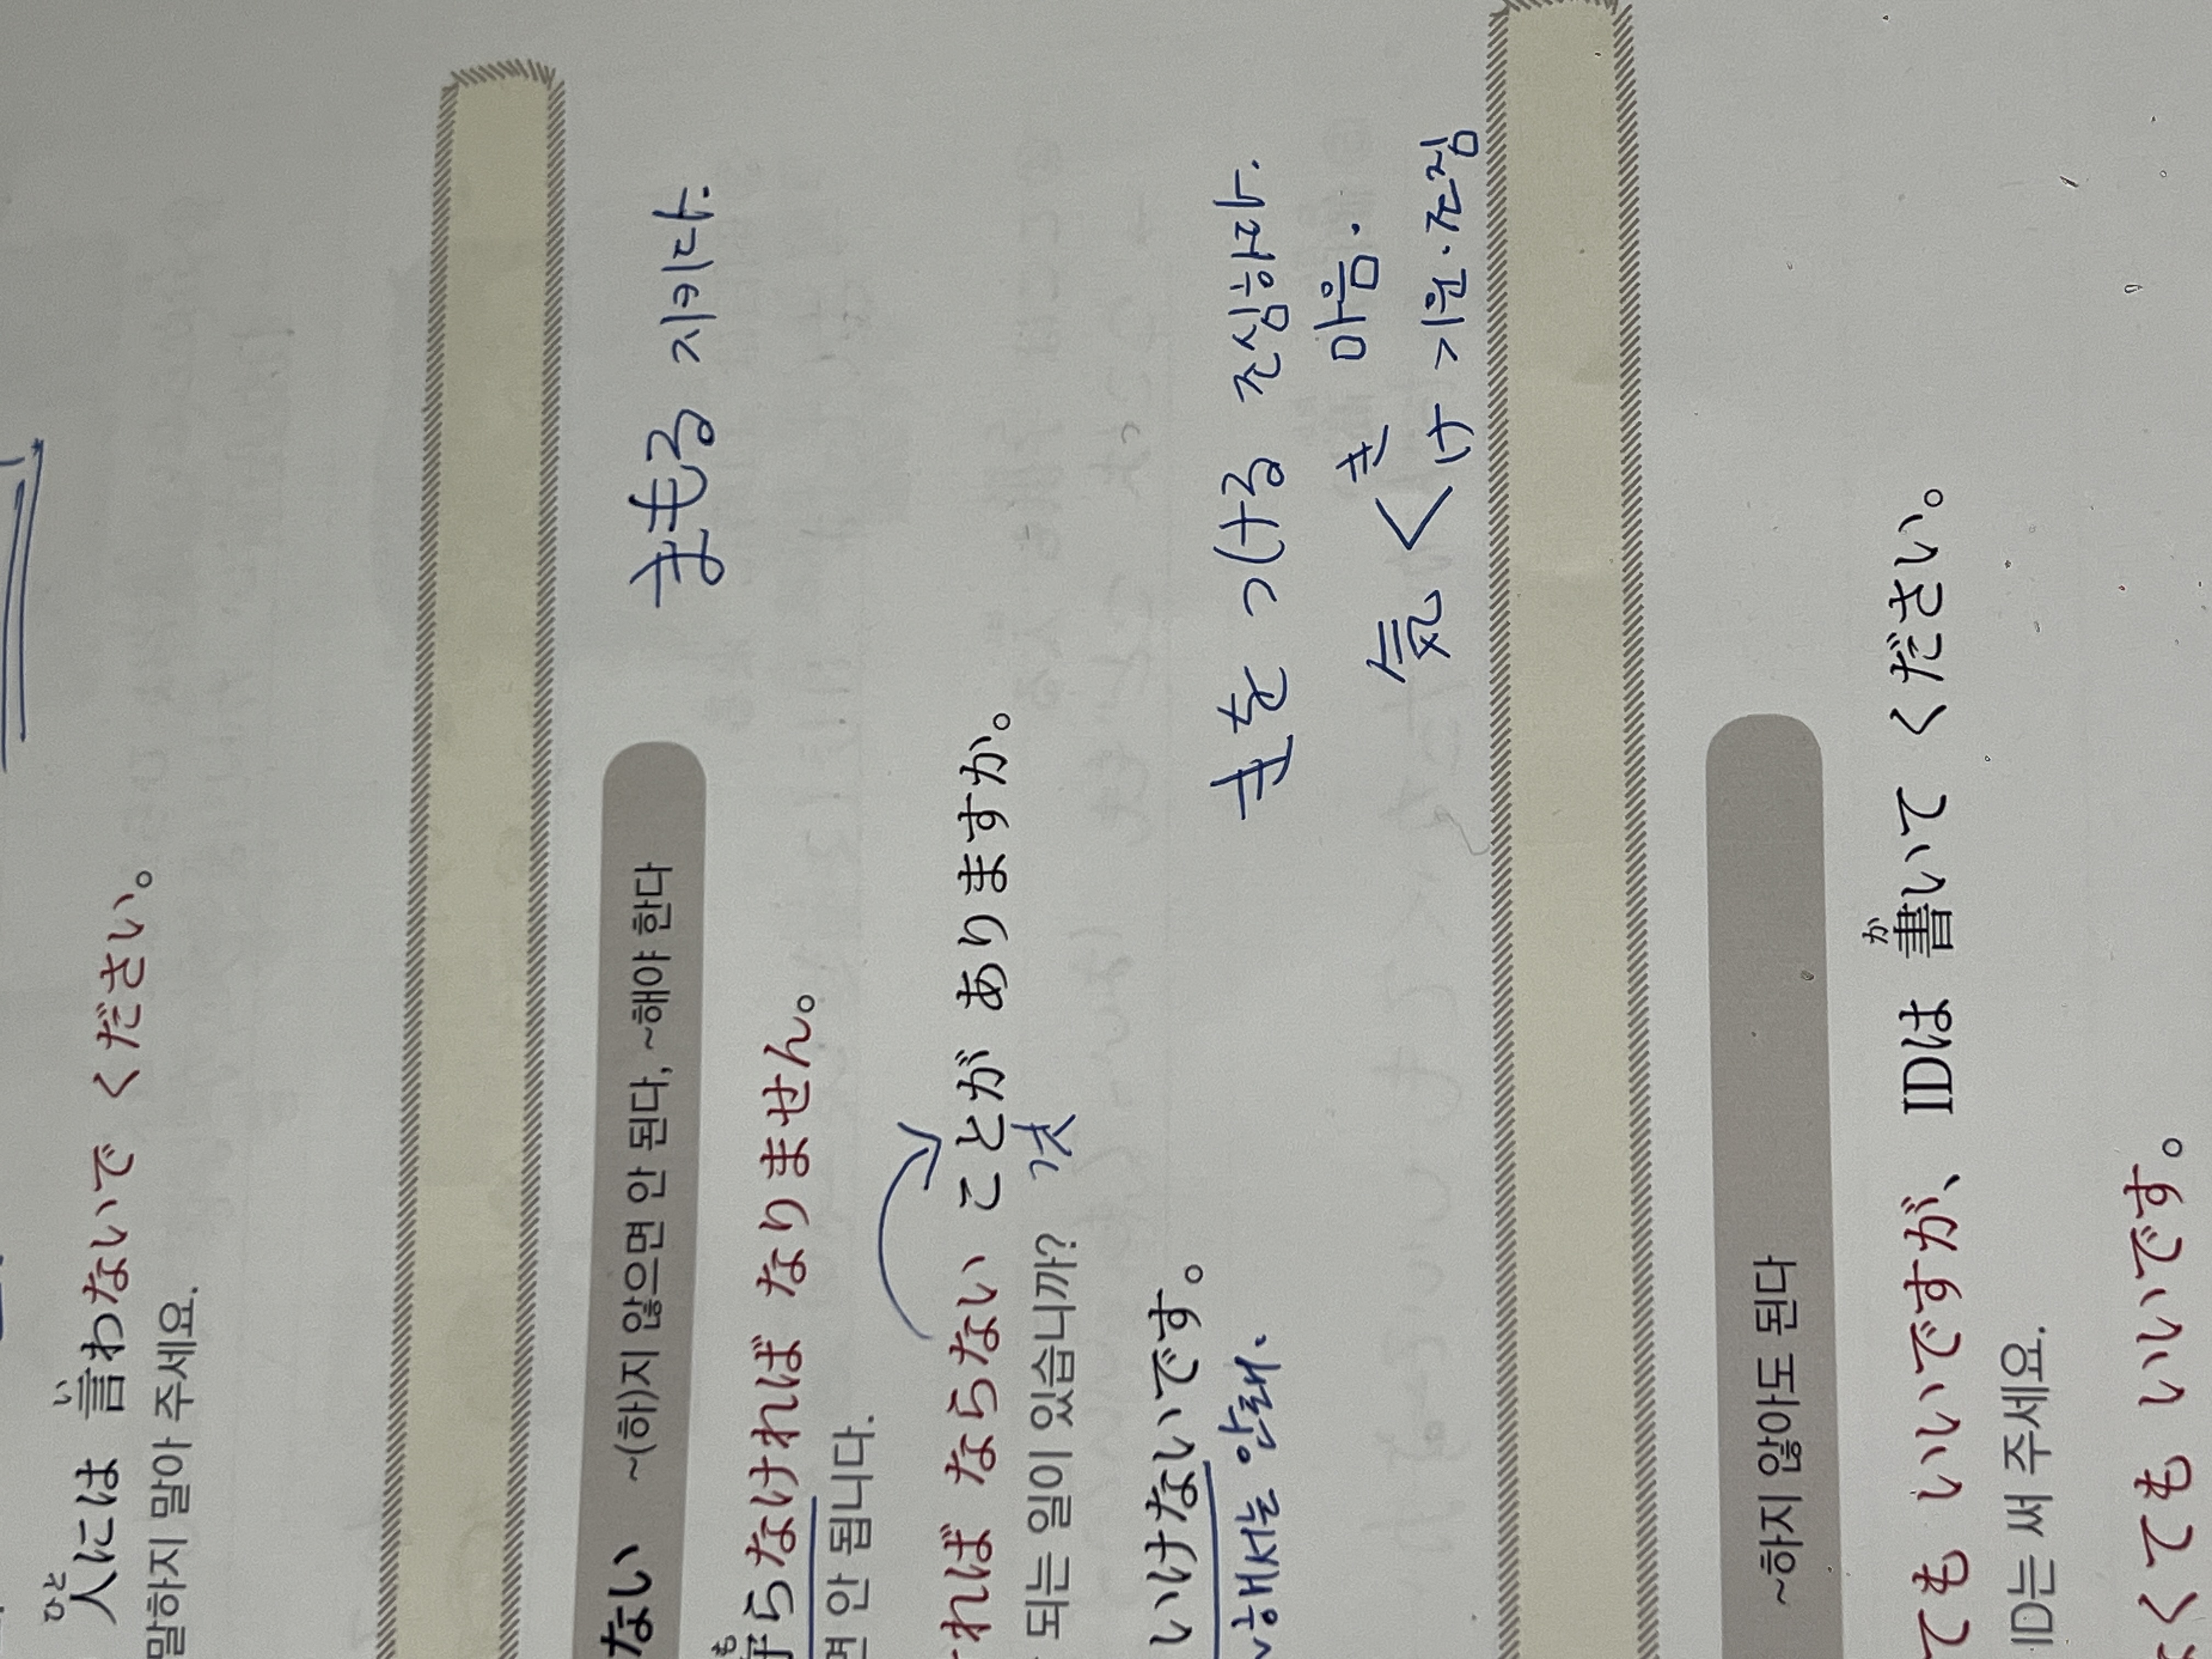 人には 言わないで ください。
ひと い
말하지 말아 주세요.
ない ~(하)지 않으면 안 된다, ~해야 한다
まもる 지키다.
守らなければ なりません。
まも
면 안 됩니다.
ければ ならない ことが ありますか。
것
되는 일이 있습니까?
いけないです。
해서는 안돼.
きを つける 조심하다.
気 < き 마음.
け 기원·조짐
~하지 않아도 된다
ても いいですが、IDは 書いて ください。
か
ID는 써 주세요.
くても いいです。